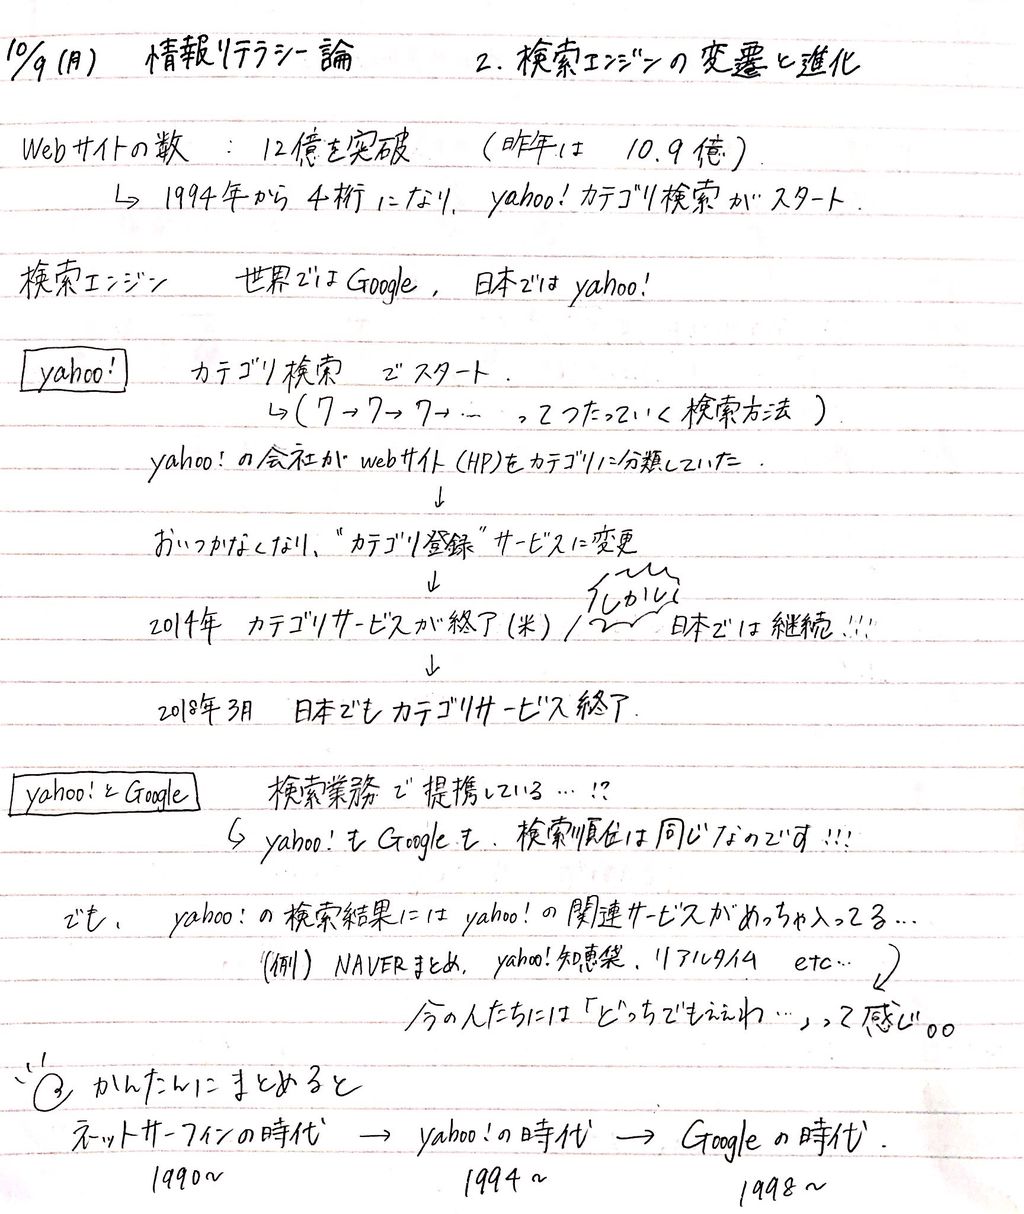 10/9(月) 情報リテラシー論 2. 検索エンジンの変遷と進化
Webサイトの数 : 12億を突破 (昨年は 10.9億)
↳ 1994年から4桁になり、yahoo!カテゴリ検索がスタート.
検索エンジン 世界ではGoogle, 日本ではyahoo!
yahoo! カテゴリ検索 でスタート.
↳(ク→ク→ク→… ってつたっていく検索方法)
yahoo!の会社がwebサイト(HP)をカテゴリに分類していた.
↓
おいつかなくなり、"カテゴリ登録"サービスに変更
↓
しかし
2014年 カテゴリサービスが終了(米) / 日本では継続!!!
↓
2018年3月 日本でもカテゴリサービス終了.
yahoo!とGoogle 検索業務で提携している…!?
↳ yahoo!もGoogleも、検索順位は同じなのです!!!
でも、yahoo!の検索結果にはyahoo!の関連サービスがめっちゃ入ってる…
(例) NAVERまとめ、yahoo!知恵袋、リアルタイム etc…
今の人たちには「どっちでもええわ…」って感じ。。
かんたんにまとめると
ネットサーフィンの時代 → yahoo!の時代 → Googleの時代.
1990~ 1994~ 1998~